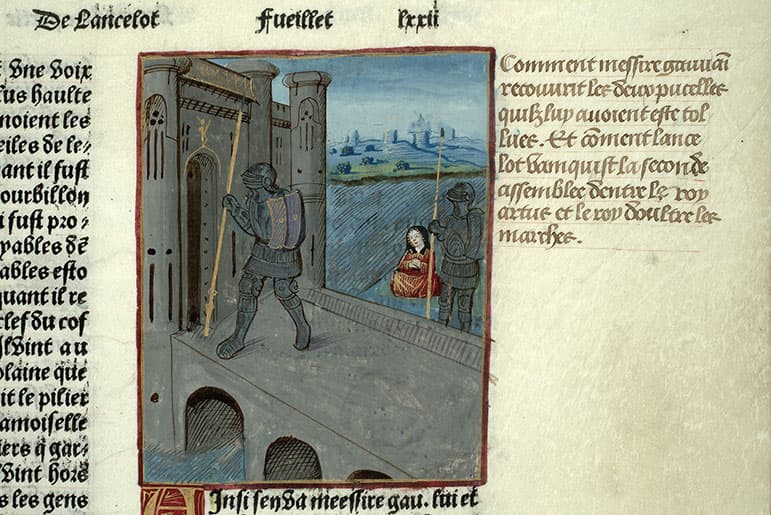 De Lancelot Fueillet lxxii
vne voix
lus haulte
noient les
eiles de le⸗
ant il fust
ourbillon
i fust pro⸗
yables dē
ables esto
quant il re
clef du cof
Il vint au
plaine que
it le pilier
amoiselle
iers q̄ gar⸗
vint hors
s les gens
Comment messire gauuaī
recouurit les deux pucelles
quilz luy auoient este tol
lues. Et cōment lance
lot vainquist la seconde
assemblee dentre le roy
artus et le roy doultre les
marches.
AInsi senva meessire gau. lui et